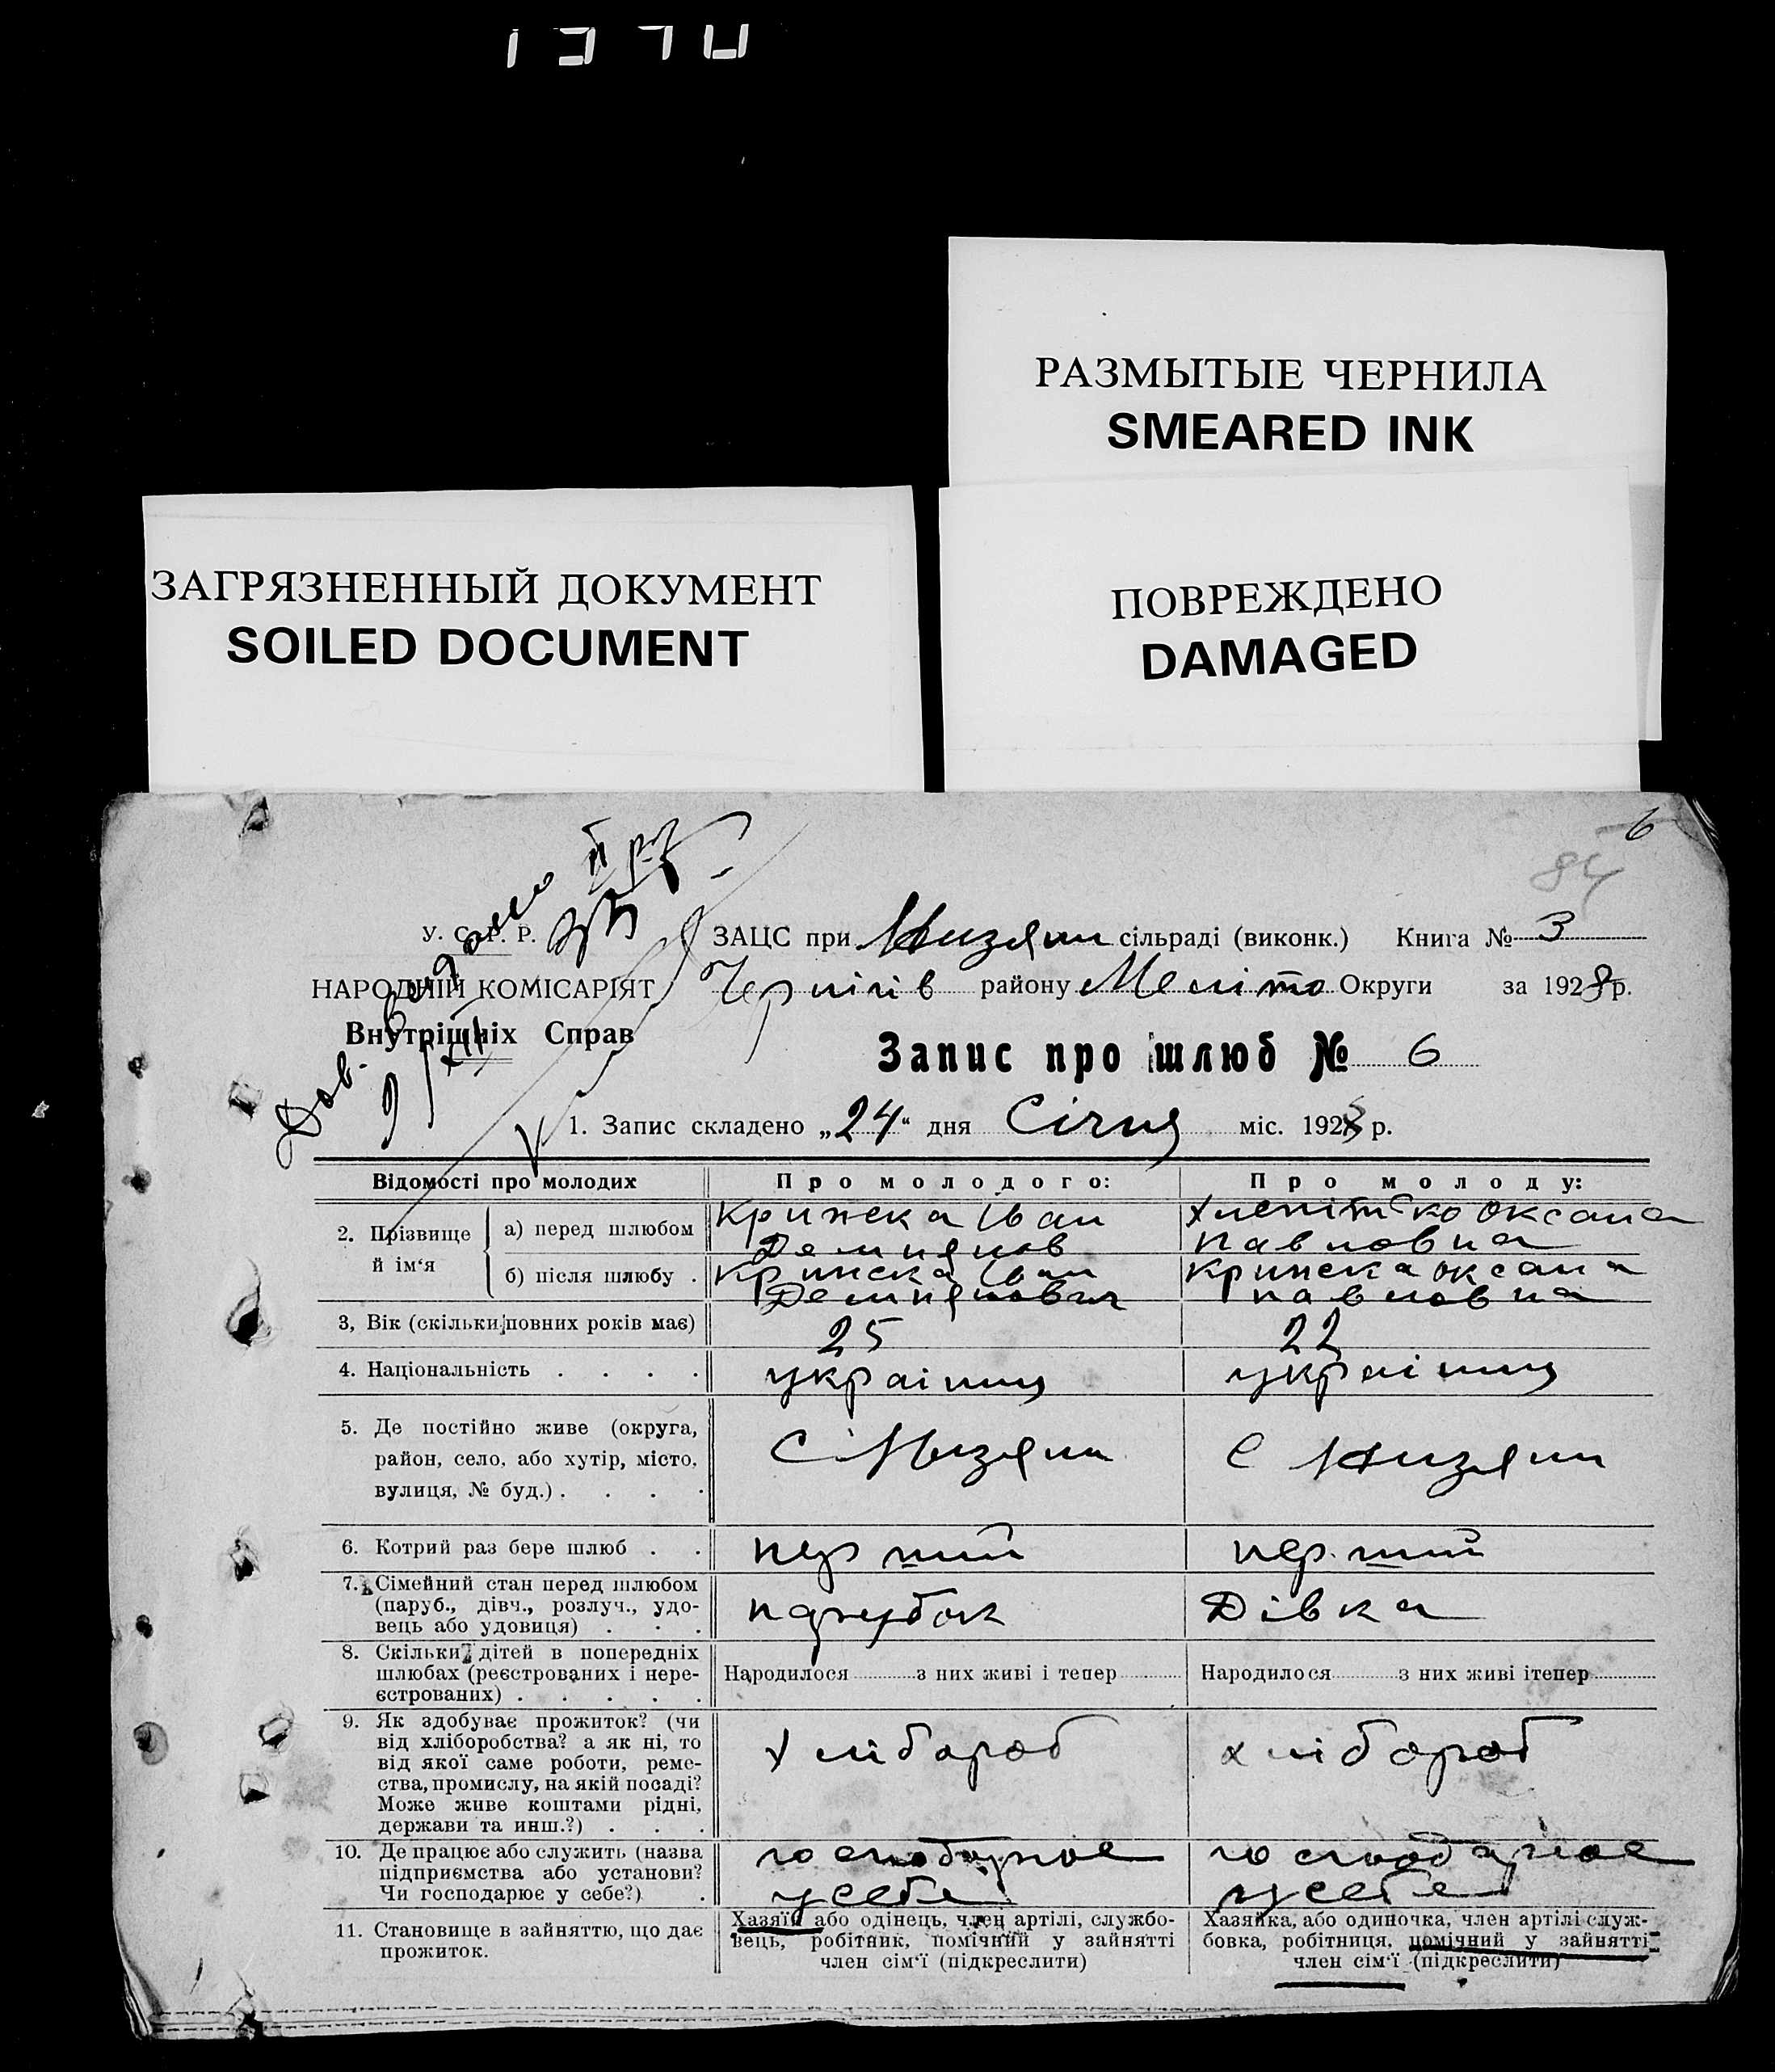 РАЗМЫТЫЕ ЧЕРНИЛА
SMEARED INK
ЗАГРЯЗНЕННЫЙ ДОКУМЕНТ
SOILED DOCUMENT
ПОВРЕЖДЕНО
DAMAGED
6
84
У. С. Р. Р.
НАРОДНІЙ КОМІСАРІЯТ
Внутрішніх Справ
ЗАЦС при Низяни сільраді (виконк.) Книга № 3
Чернігів району Меліто Округи за 1928 р.
Запис про шлюб № 6
1. Запис складено „24“ дня Січня міс. 1928 р.
Відомості про молодих
Про молодого:
Про молоду:
2. Прізвище й ім‘я
а) перед шлюбом
Крижска Іван
Демпянов
Оксана
Павловна
б) після шлюбу .
Крижска Іван
Демпянович
Крижска Оксана
Павловна
3, Вік (скільки повних років має)
25
22
4. Національність . . . .
українці
українці
5. Де постійно живе (округа,
район, село, або хутір, місто,
вулиця, № буд.) . . . .
С Низяни
С Низяни
6. Котрий раз бере шлюб . .
перший
перший
7. Сімейний стан перед шлюбом
(паруб., дівч., розлуч., удо-
вець або удовиця) . . .
парубок
Дівка
8. Скільки дітей в попередніх
шлюбах (реєстрованих і нере-
єстрованих) . . . . .
Народилося з них живі і тепер
Народилося з них живі ітепер
9. Як здобуває прожиток? (чи
від хліборобства? а як ні, то
від якої саме роботи, реме-
ства, промислу, на якій посаді?
Може живе коштами рідні,
держави та инш.?) . . .
хлібороб
хлібороб
10. Де працює або служить (назва
підприємства або установи?
Чи господарює у себе?) .
господарює
усебе
господарює
усебе
11. Становище в зайняттю, що дає
прожиток.
Хазяїн або одінець, член артілі, службо-
вець, робітник, помічний у зайнятті
член сім‘ї (підкреслити)
Хазяйка, або одиночка, член артілі служ-
бовка, робітниця, помічний у зайнятті
член сім‘ї (підкреслити)